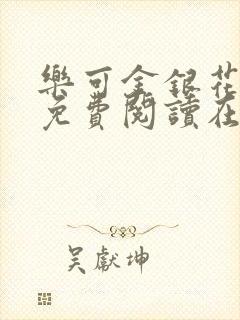 樂可金銀花
免費閱讀在
吴獻坤